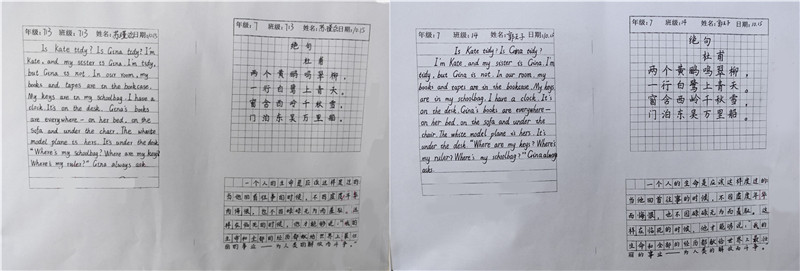 年级:713 班级:713 姓名: 日期:10.15
Is Kate tidy? Is Gina tidy? I'm
Kate, and my sister is Gina. I'm tidy,
but Gina is not. In our room, my
books and tapes are in the bookcase.
My keys are in my schoolbag. I have a
clock. It's on the desk. Gina's books
are everywhere— on her bed, on the
sofa and under the chair. The white
model plane is hers. It's under the desk
"Where's my schoolbag? Where are my keys?
Where's my ruler?" Gina always ask
年级:7 班级:713 姓名: 日期:10.15
绝句
杜甫
两个黄鹂鸣翠柳,
一行白鹭上青天。
窗含西岭千秋雪,
门泊东吴万里船。
一个人的生命是应该这样度过的
当他回首往事的时候,不因虚度年华
而悔恨,也不因碌碌无为而羞耻。这
样在临死的时候,他才能够说:"我的
生命和全部的经历都献给世界上最壮
丽的事业——为人类的解放而斗争。"
年级:7 班级:14 姓名: 日期:10.15
Is Kate tidy? Is Gina tidy?
I'm Kate, and my sister is Gina. I'm
tidy, but Gina is not. In our room, my
books and tapes are in the bookcase. My keys
are in my schoolbag. I have a clock. It's
on the desk. Gina's books are everywhere—
on her bed, on the sofa and under the
chair. The white model plane is hers. It's
under the desk "Where are my keys? Where's
my ruler? Where's my schoolbag?" Gina always
asks
年级:7 班级:14 姓名: 日期:10.15
绝句
杜甫
两个黄鹂鸣翠柳,
一行白鹭上青天。
窗含西岭千秋雪,
门泊东吴万里船。
一个人的生命是应该这样度过的
当他回首往事的时候,不因虚度年华
而悔恨,也不因碌碌无为而羞耻。这
样在临死的时候,他才能够说:"我的
生命和全部的经历都献给世界上最壮
丽的事业——为人类的解放而斗争。"